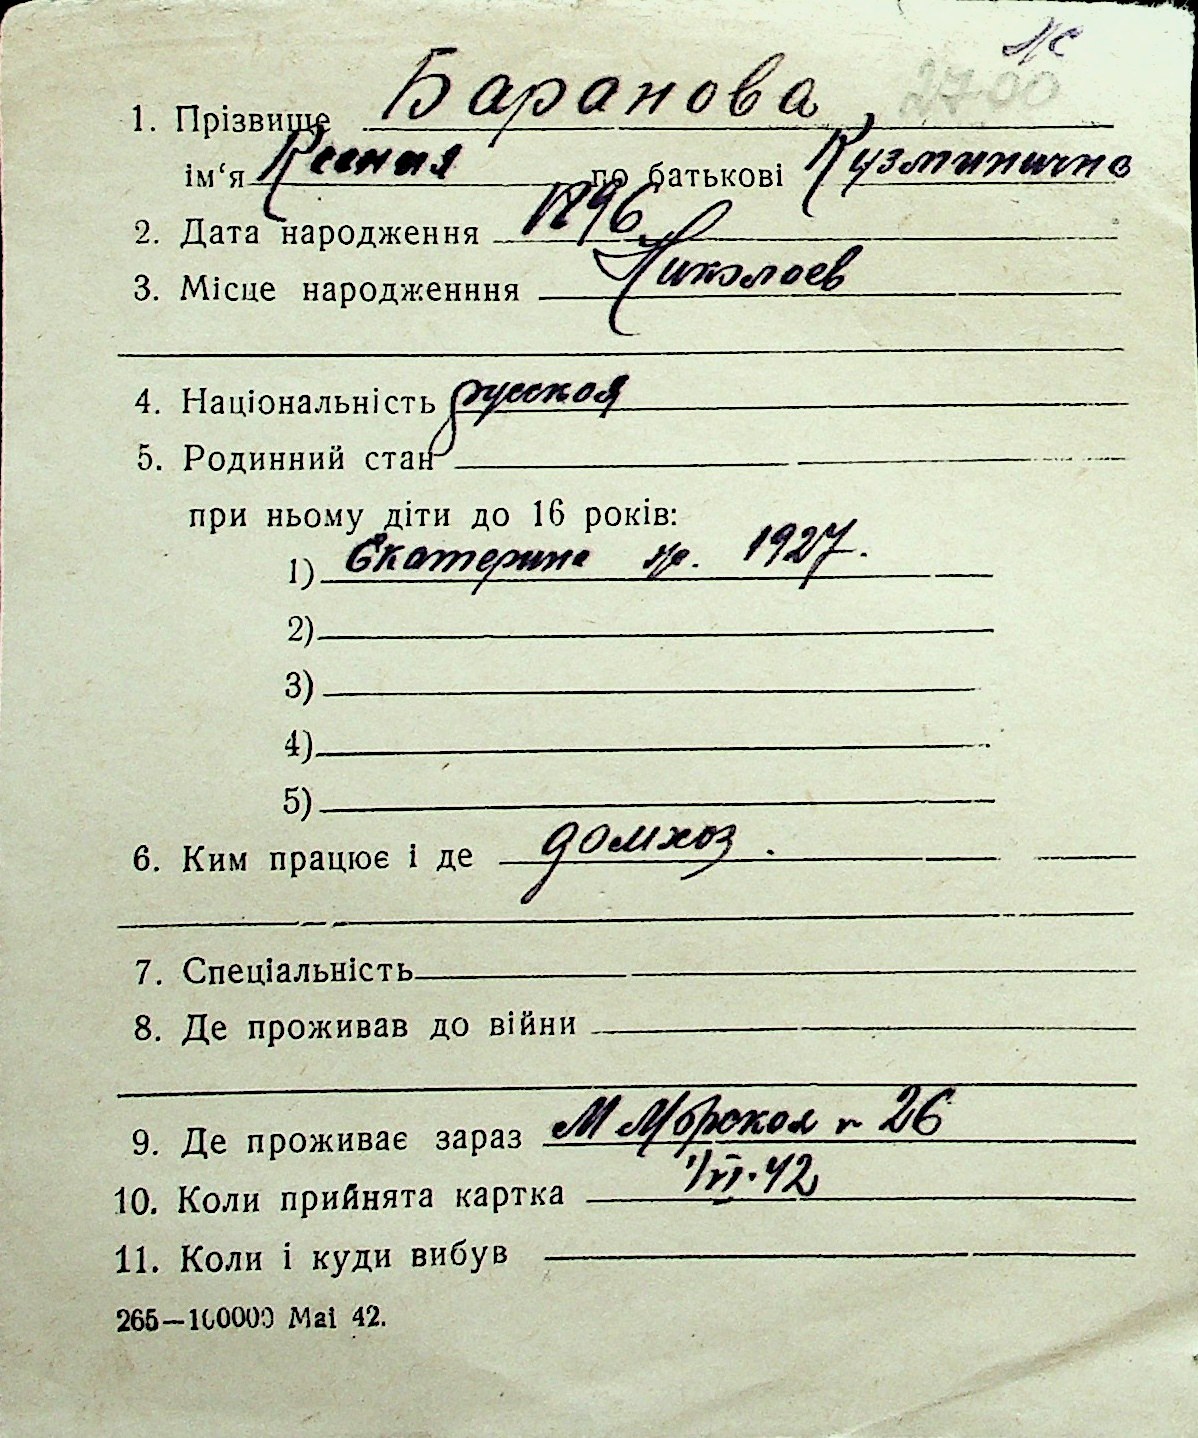 2700
1. Прізвище Баранова
ім‘я Ксения по батькові Кузминична
2. Дата народження 1896
3. Місце народженння Николаев
4. Національність русская
5. Родинний стан
при ньому діти до 16 років:
1) Екатерина 1927.
2)
3)
4)
5)
6. Ким працює і де домхоз.
7. Спеціальність
8. Де проживав до війни
9. Де проживає зараз М Морская 26
10. Коли прийнята картка 1/VI·42
11. Коли і куди вибув
265—100000 Mai 42.